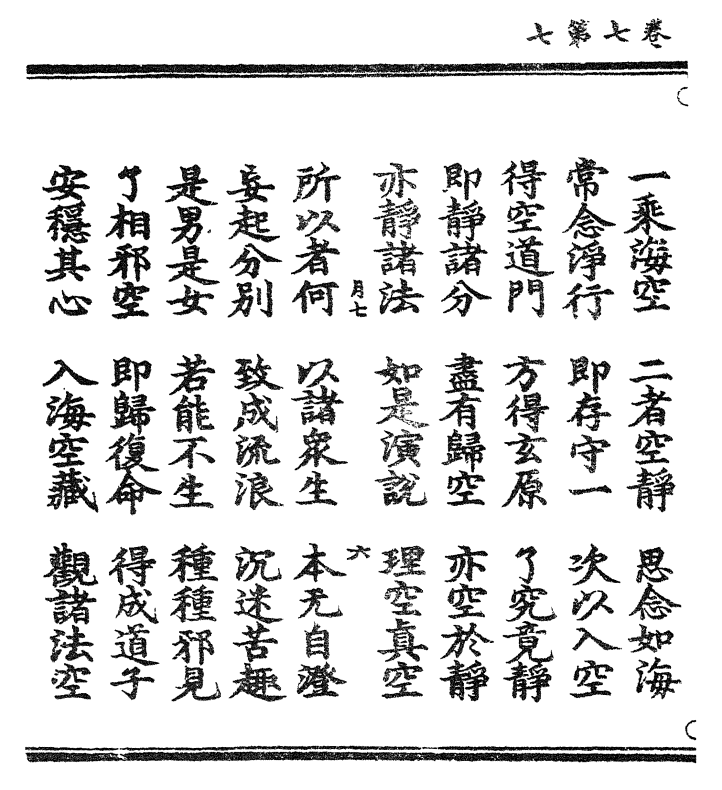 卷七第七
一乘海空 二者空靜 思念如海
常念淨行 即存守一 次以入空
得空道門 方得玄原 了究竟靜
即靜諸分 盡有歸空 亦空於靜
亦靜諸法 如是演說 理空真空
月七 六
所以者何 以諸衆生 本无自澄
妄起分別 致成流浪 沉迷苦趣
是男是女 若能不生 種種邪見
了相邪空 即歸復命 得成道子
安穩其心 入海空藏 觀諸法空